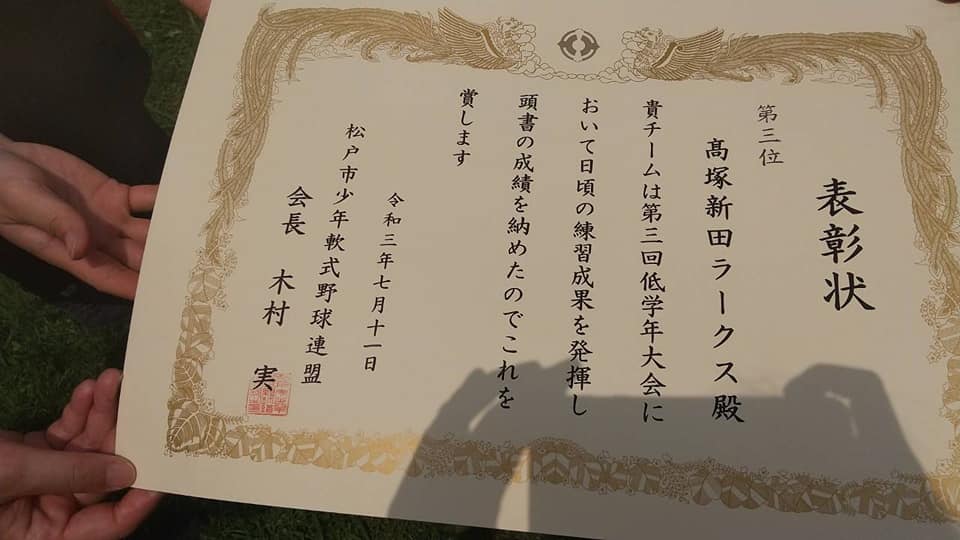 表彰状
第三位
髙塚新田ラークス殿
貴チームは第三回低学年大会に
おいて日頃の練習成果を発揮し
頭書の成績を納めたのでこれを
賞します
令和三年七月十一日
松戸市少年軟式野球連盟
会長 木村 実